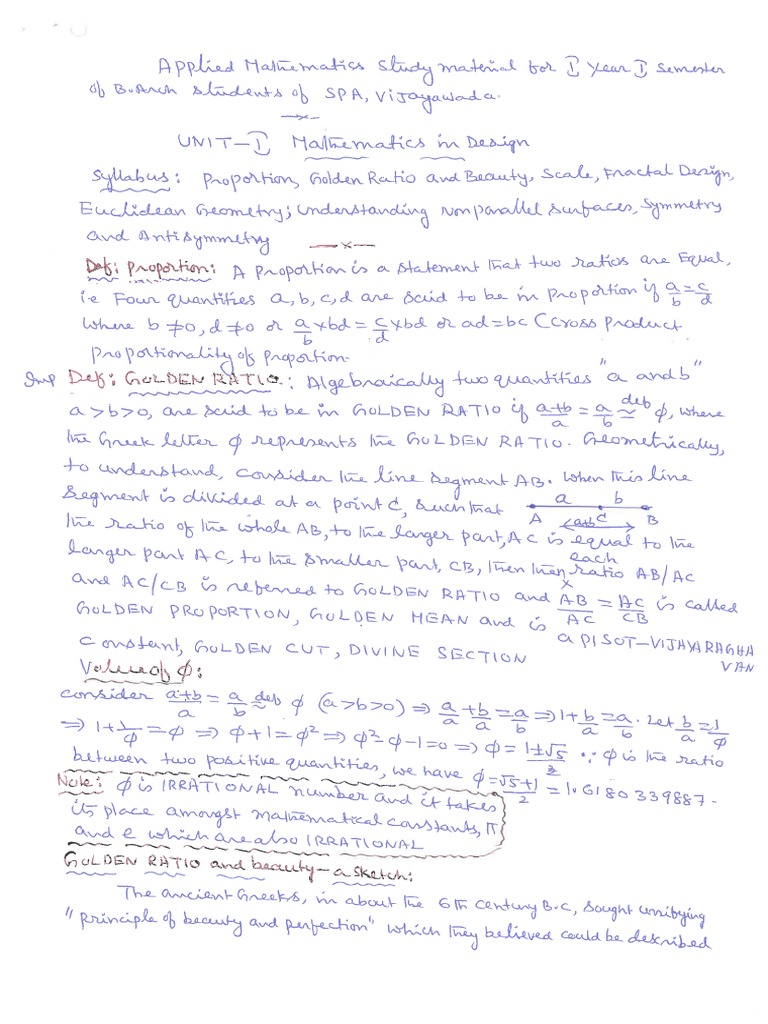 Applied Mathematics study material for I Year I Semester
of B.Arch students of SPA, Vijayawada.
—x—
UNIT-I Mathematics in Design
Syllabus: Proportion, Golden Ratio and Beauty, Scale, Fractal Design,
Euclidean Geometry; understanding nonparallel surfaces, Symmetry
and AntiSymmetry
—x—
Def: Proportion: A Proportion is a statement that two ratios are Equal,
ie Four quantities a, b, c, d are said to be in proportion if a/b = c/d
where b ≠ 0, d ≠ 0 or a/b × bd = c/d × bd or ad = bc (cross product
proportionality of proportion.
Imp Def: GOLDEN RATIO: Algebraically two quantities "a and b"
a > b > 0, are said to be in GOLDEN RATIO if (a+b)/a = a/b ≃ def φ, where
the Greek letter φ represents the GOLDEN RATIO. Geometrically,
to understand, consider the line segment AB. When this line
segment is divided at a point C, such that
a b
A C B
a+b
the ratio of the whole AB, to the larger part, AC is equal to the
larger part AC, to the smaller part, CB, then each ratio AB/AC
and AC/CB is referred to GOLDEN RATIO and AB/AC = AC/CB is called
GOLDEN PROPORTION, GOLDEN MEAN and is a PISOT-VIJAYARAGHAVAN
Constant, GOLDEN CUT, DIVINE SECTION
Value of φ:
consider (a+b)/a = a/b ≃ def φ (a > b > 0) ⇒ a/a + b/a = a/b ⇒ 1 + b/a = a/b. Let b/a = 1/φ
⇒ 1 + 1/φ = φ ⇒ φ + 1 = φ² ⇒ φ² - φ - 1 = 0 ⇒ φ = (1±√5)/2 ∵ φ is the ratio
between two positive quantities, we have φ = (√5+1)/2 = 1.6180339887.
Note: φ is IRRATIONAL number and it takes
its place amongst mathematical constants, π
and e which are also IRRATIONAL
GOLDEN RATIO and beauty - a sketch:
The ancient Greeks, in about the 6th century B.C, sought unifying
"principle of beauty and perfection" which they believed could be described